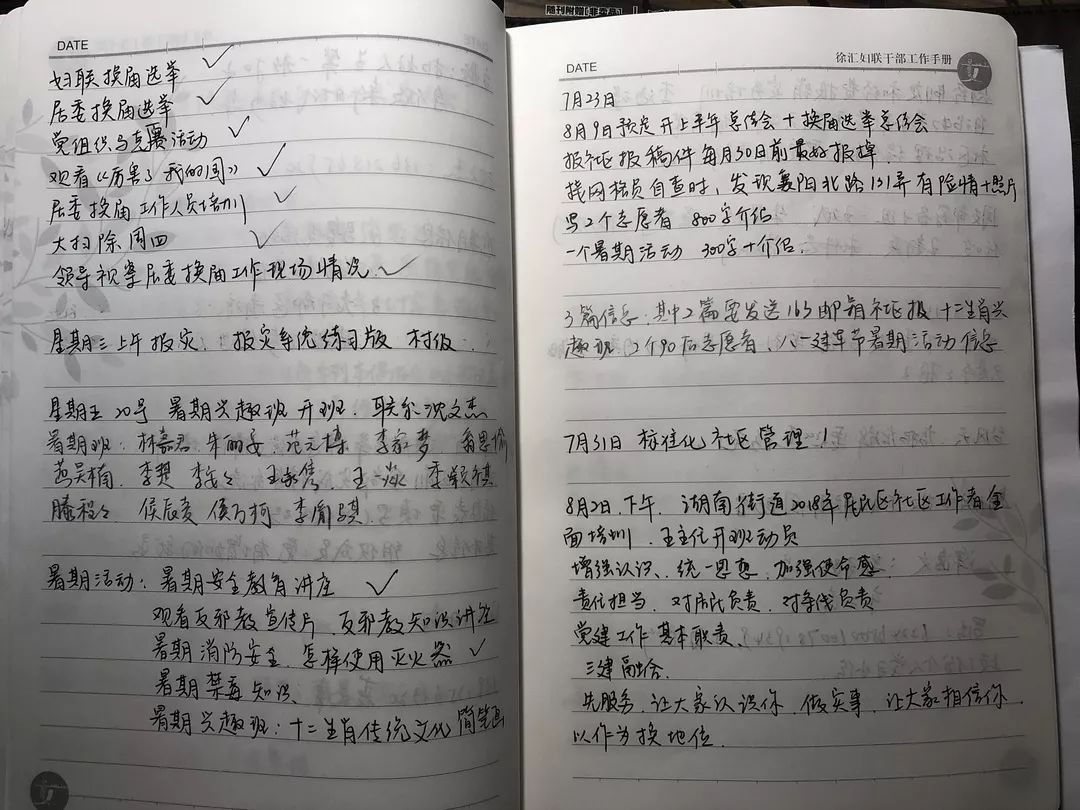 DATE
妇联换届选举 ✓
居委换届选举 ✓
党组织 活动 ✓
观看《厉害了我的国》 ✓
居委换届工作人员培训 ✓
大扫除周四 ✓
领导视察居委换届工作现场情况 ✓
星期三上午报灾: 报灾系统练习版 村级.
星期五 20号 暑期兴趣班开班. 联系沈文杰
暑期班: 林嘉君 朱丽安 范元博 李家梦 翁思愉
燕吴楠. 李楚 王 王一焱 季
滕程 侯辰 侯 柯 李俞骐
暑期活动: 暑期安全教育讲座 ✓
观看反邪教宣传片. 反邪教知识讲座
暑期消防安全. 怎样使用灭火器 ✓
暑期禁毒知识.
暑期兴趣班: 十二生肖传统文化 简笔画
徐汇妇联干部工作手册
DATE
7月23日
8月9日预定开上半年总结会+换届选举总结会
报社区报稿件每月30日前最好报掉
找网格员自查时, 发现襄阳北路131弄有险情+照片
写2个志愿者 800字介绍
一个暑期活动 300字+介绍.
3篇信息. 其中2篇要发送163邮箱社区报 十二生肖兴
趣班 (2个90后志愿者、八一建军节暑期活动信息
7月31日 标准化社区管理!
8月2日.下午. 湖南街道2018年居民区社区工作者全
面培训. 王主任开班动员
增强认识、统一思想. 加强使命感.
责任担当. 对居民负责. 对 负责
党建工作 基本职责、
三建融合.
先服务. 让大家认识你. 做实事. 让大家相信你.
以作为换地位.